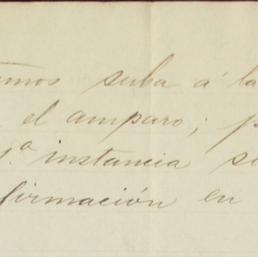 suba á la
el amparo;
1.ª instancia
firmación en